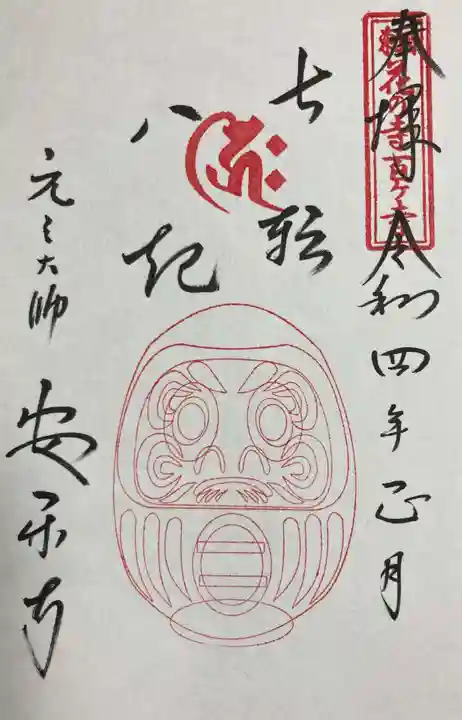 奉拝 令和四年正月
七転
八起
元三大師 安楽寺